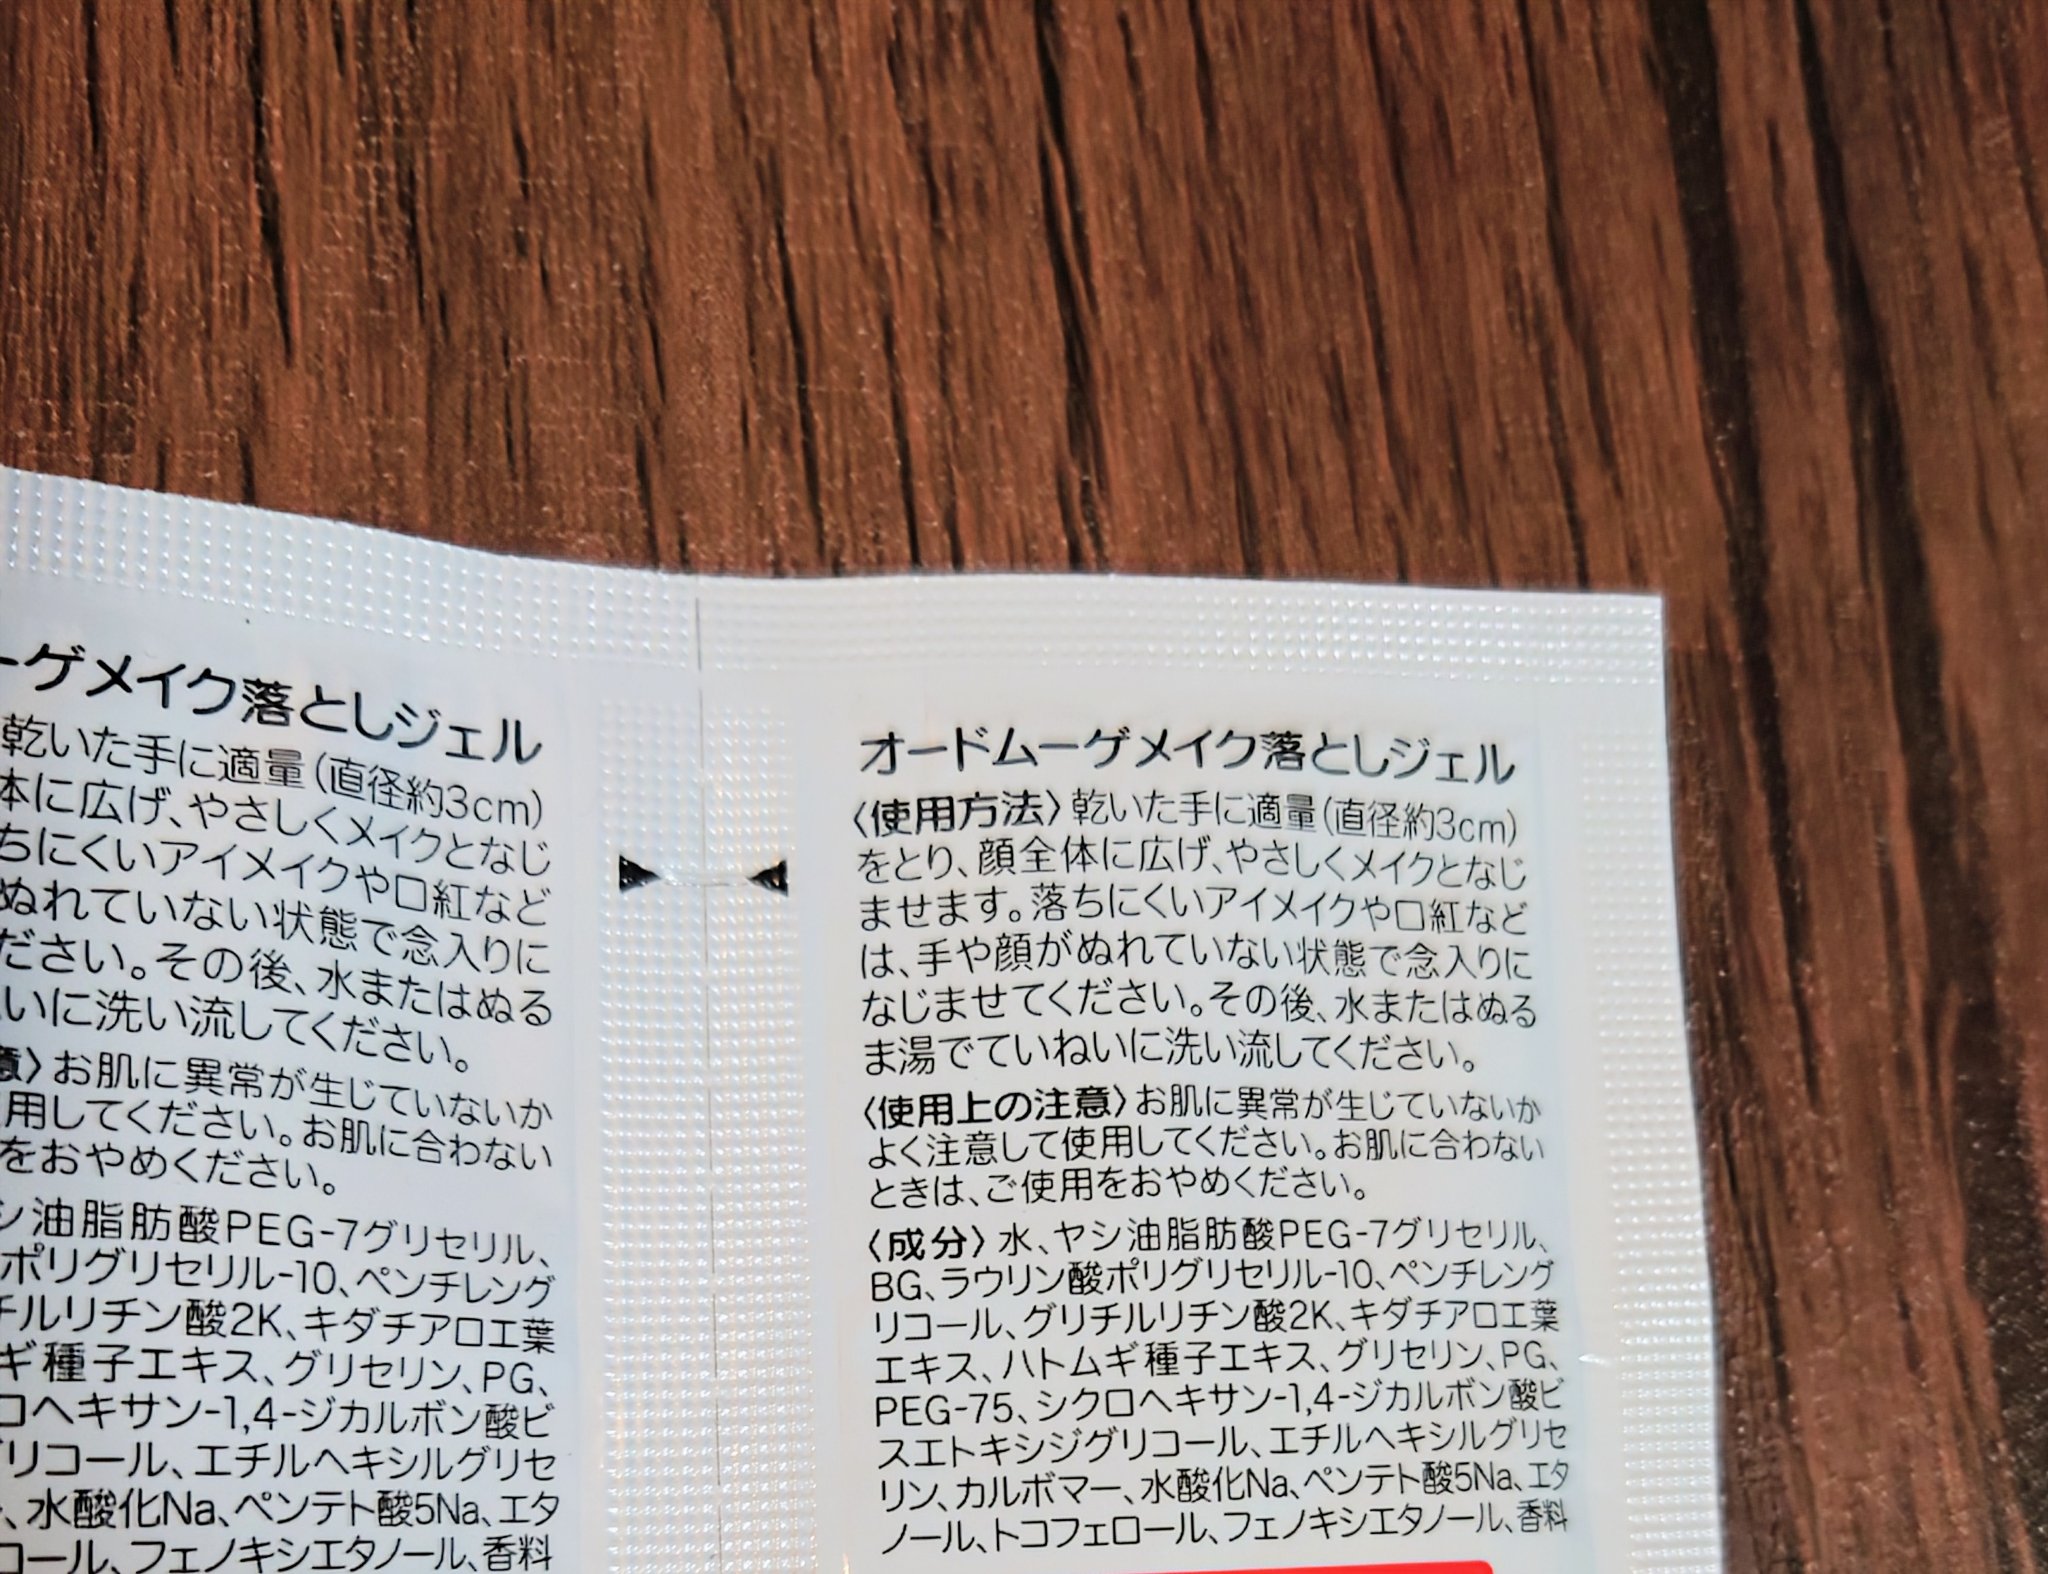 ーゲメイク落としジェル
乾いた手に適量(直径約3cm)
体に広げ、やさしくメイクとなじ
ちにくいアイメイクや口紅など
ぬれていない状態で念入りに
ださい。その後、水またはぬる
いに洗い流してください。
意〉お肌に異常が生じていないか
用してください。お肌に合わない
をおやめください。
シ油脂肪酸PEG-7グリセリル、
ポリグリセリル-10、ペンチレング
チルリチン酸2K、キダチアロエ葉
ギ種子エキス、グリセリン、PG、
ロヘキサン-1,4-ジカルボン酸ビ
グリコール、エチルヘキシルグリセ
、水酸化Na、ペンテト酸5Na、エタ
コール、フェノキシエタノール、香料
オードムーゲメイク落としジェル
〈使用方法〉乾いた手に適量(直径約3cm)
をとり、顔全体に広げ、やさしくメイクとなじ
ませます。落ちにくいアイメイクや口紅など
は、手や顔がぬれていない状態で念入りに
なじませてください。その後、水またはぬる
ま湯でていねいに洗い流してください。
〈使用上の注意〉お肌に異常が生じていないか
よく注意して使用してください。お肌に合わない
ときは、ご使用をおやめください。
〈成分〉水、ヤシ油脂肪酸PEG-7グリセリル、
BG、ラウリン酸ポリグリセリル-10、ペンチレング
リコール、グリチルリチン酸2K、キダチアロエ葉
エキス、ハトムギ種子エキス、グリセリン、PG、
PEG-75、シクロヘキサン-1,4-ジカルボン酸ビ
スエトキシジグリコール、エチルヘキシルグリセ
リン、カルボマー、水酸化Na、ペンテト酸5Na、エタ
ノール、トコフェロール、フェノキシエタノール、香料